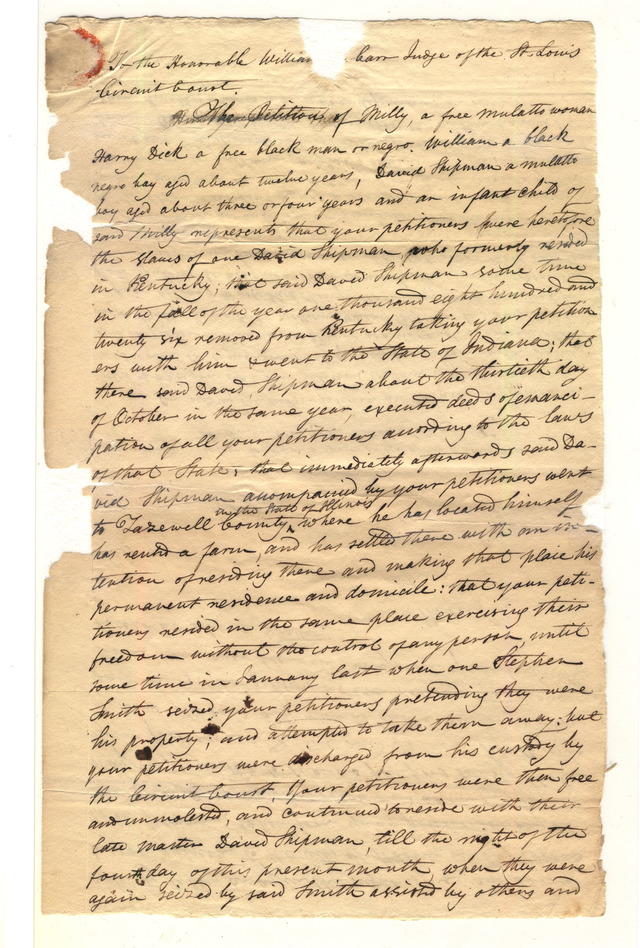 To the Honorable William Carr Judge of the St. Louis
Circuit Court.
The Petition of Milly, a free mulatto woman
Harry Dick a free black man or negro, William a black
negro boy aged about twelve years, David Shipman a mulatto
boy aged about three or four years and an infant child of
said Milly represents that your petitioners were heretofore
the slaves of one David Shipman, who formerly resided
in Kentucky; that said David Shipman some time
in the fall of the year one thousand eight hundred and
twenty six removed from Kentucky taking your petition
ers with him & went to the State of Indiana; that
there said David Shipman about the thirtieth day
of October in the same year, executed deeds of emanci-
pation of all your petitioners according to the laws
of that State; that immediately afterwards said Da-
vid Shipman accompanied by your petitioners went
in the State of Illinois
to Tazewell County, where he has located himself
has rented a farm, and has settled there with an in
tention of residing there and making that place his
permanent residence and domicile: that your peti-
tioners resided in the same place exercising their
freedom without the control of any person, until
some time in January last when one Stephen
Smith seized your petitioners pretending they were
his property; and attempted to take them away: but
your petitioners were discharged from his custody by
the Circuit Court, Your petitioners were then free
and unmolested, and continued to reside with their
late master David Shipman, till the night of the
fourth day of this present month, when they were
again seized by said Smith assisted by others and